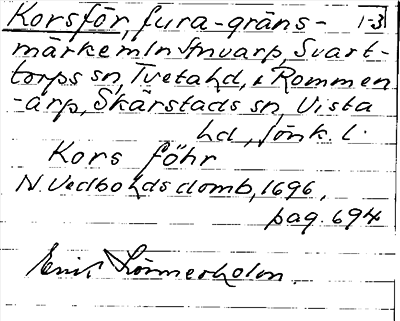 Korsför, fura-gräns- 1-3
märke mln Anvarp, Svart-
torps sn, Tveta hd, o Rommen
-arp, Skärstads sn, Vista
hd, Jönk. l.
Kors föhr
N. Vedbo hds domb, 1696,
pag. 694